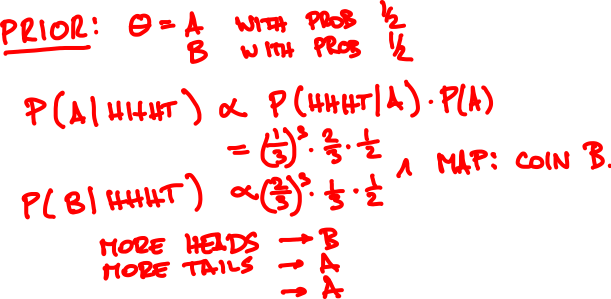 PRIOR: Θ = A WITH PROB 1/2
B WITH PROB 1/2
P(A|HHHT) ∝ P(HHHT|A)·P(A)
= (1/3)³ · 2/3 · 1/2
1 MAP: COIN B.
P(B|HHHT) ∝ (2/3)³ · 1/3 · 1/2
MORE HEADS → B
MORE TAILS → A
→ A